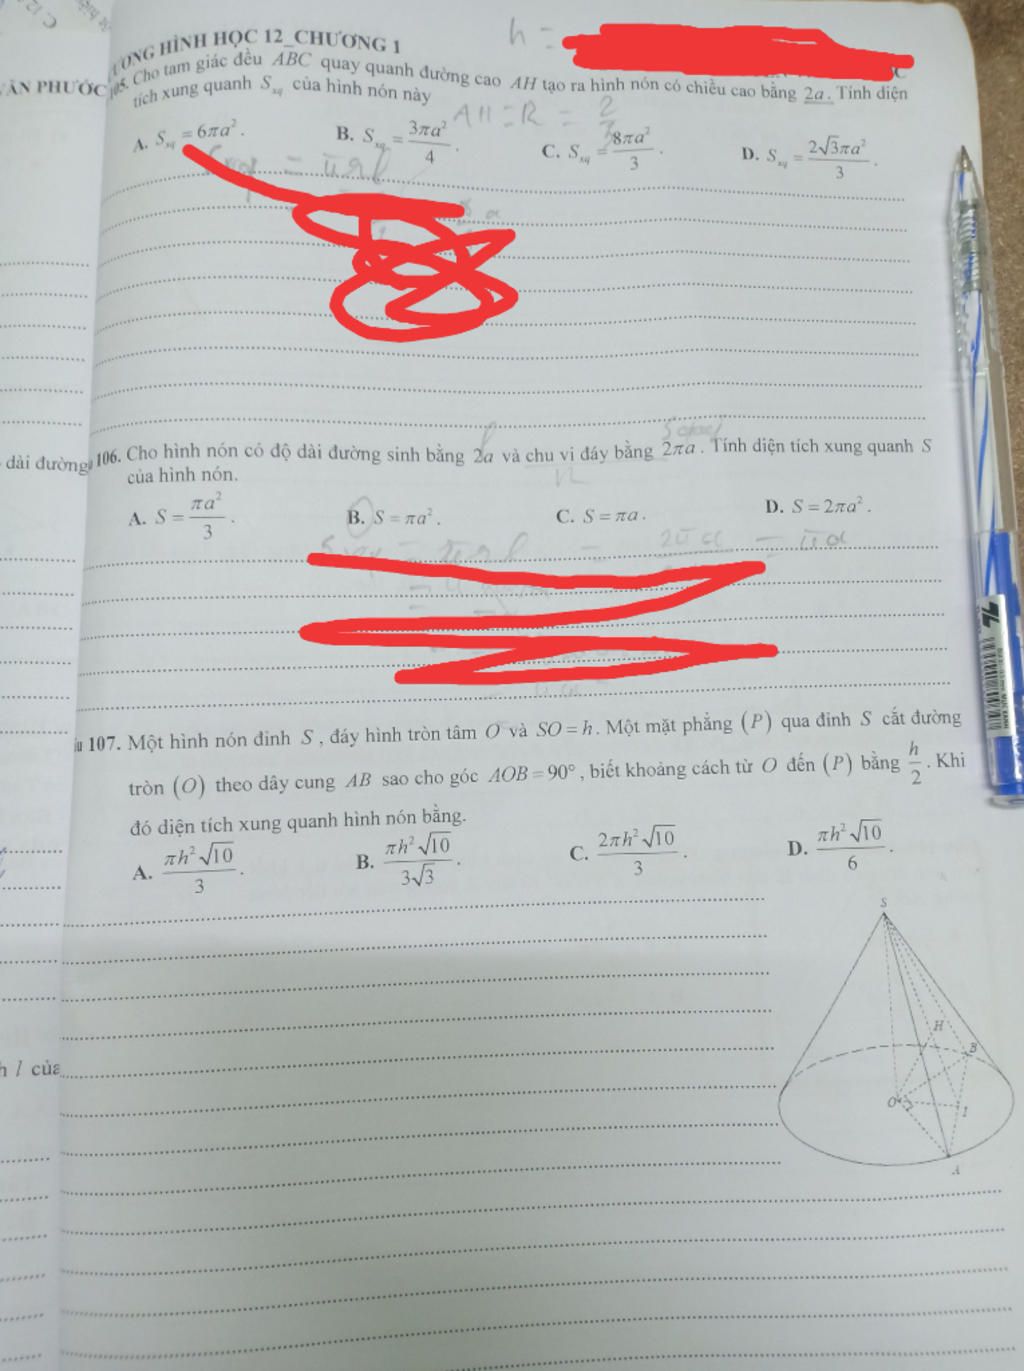 ƯƠNG HÌNH HỌC 12_CHƯƠNG 1
h =
ĂN PHƯỚC
105. Cho tam giác đều ABC quay quanh đường cao AH tạo ra hình nón có chiều cao bằng 2a. Tính diện
tích xung quanh Sxq của hình nón này
AH = R =
A. Sxq = 6πa².
B. Sxq = 3πa²/4.
C. Sxq = 8πa²/3.
D. Sxq = 2√3πa²/3.
Sxq = πrl
dài đường
106. Cho hình nón có độ dài đường sinh bằng 2a và chu vi đáy bằng 2πa. Tính diện tích xung quanh S
của hình nón.
A. S = πa²/3.
B. S = πa².
C. S = πa.
D. S = 2πa².
107. Một hình nón đỉnh S, đáy hình tròn tâm O và SO = h. Một mặt phẳng (P) qua đỉnh S cắt đường
tròn (O) theo dây cung AB sao cho góc AOB = 90°, biết khoảng cách từ O đến (P) bằng h/2. Khi
đó diện tích xung quanh hình nón bằng.
A. πh²√10/3.
B. πh²√10/3√3.
C. 2πh²√10/3.
D. πh²√10/6.
S
H
B
O
I
A
h l của